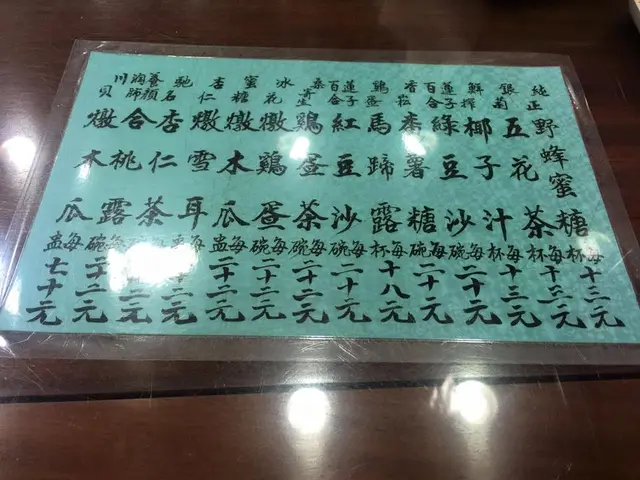 純正野蜂蜜糖每杯十三元
銀菊五花茶每杯十三元
鮮榨椰子汁每杯十三元
蓮子百合綠豆沙每碗二十元
番薯糖每碗二十元
鷄蛋馬蹄露每杯十八元
蓮子百合紅豆沙每碗二十元
桑寄生鷄蛋茶每碗二十二元
冰花燉鷄蛋每碗二十二元
蜜糖燉木瓜每盅二十二元
杏仁燉雪耳每盅二十二元
馳名杏仁茶每碗二十二元
養顏潤肺合桃露每碗二十二元
川貝燉木瓜每盅七十元